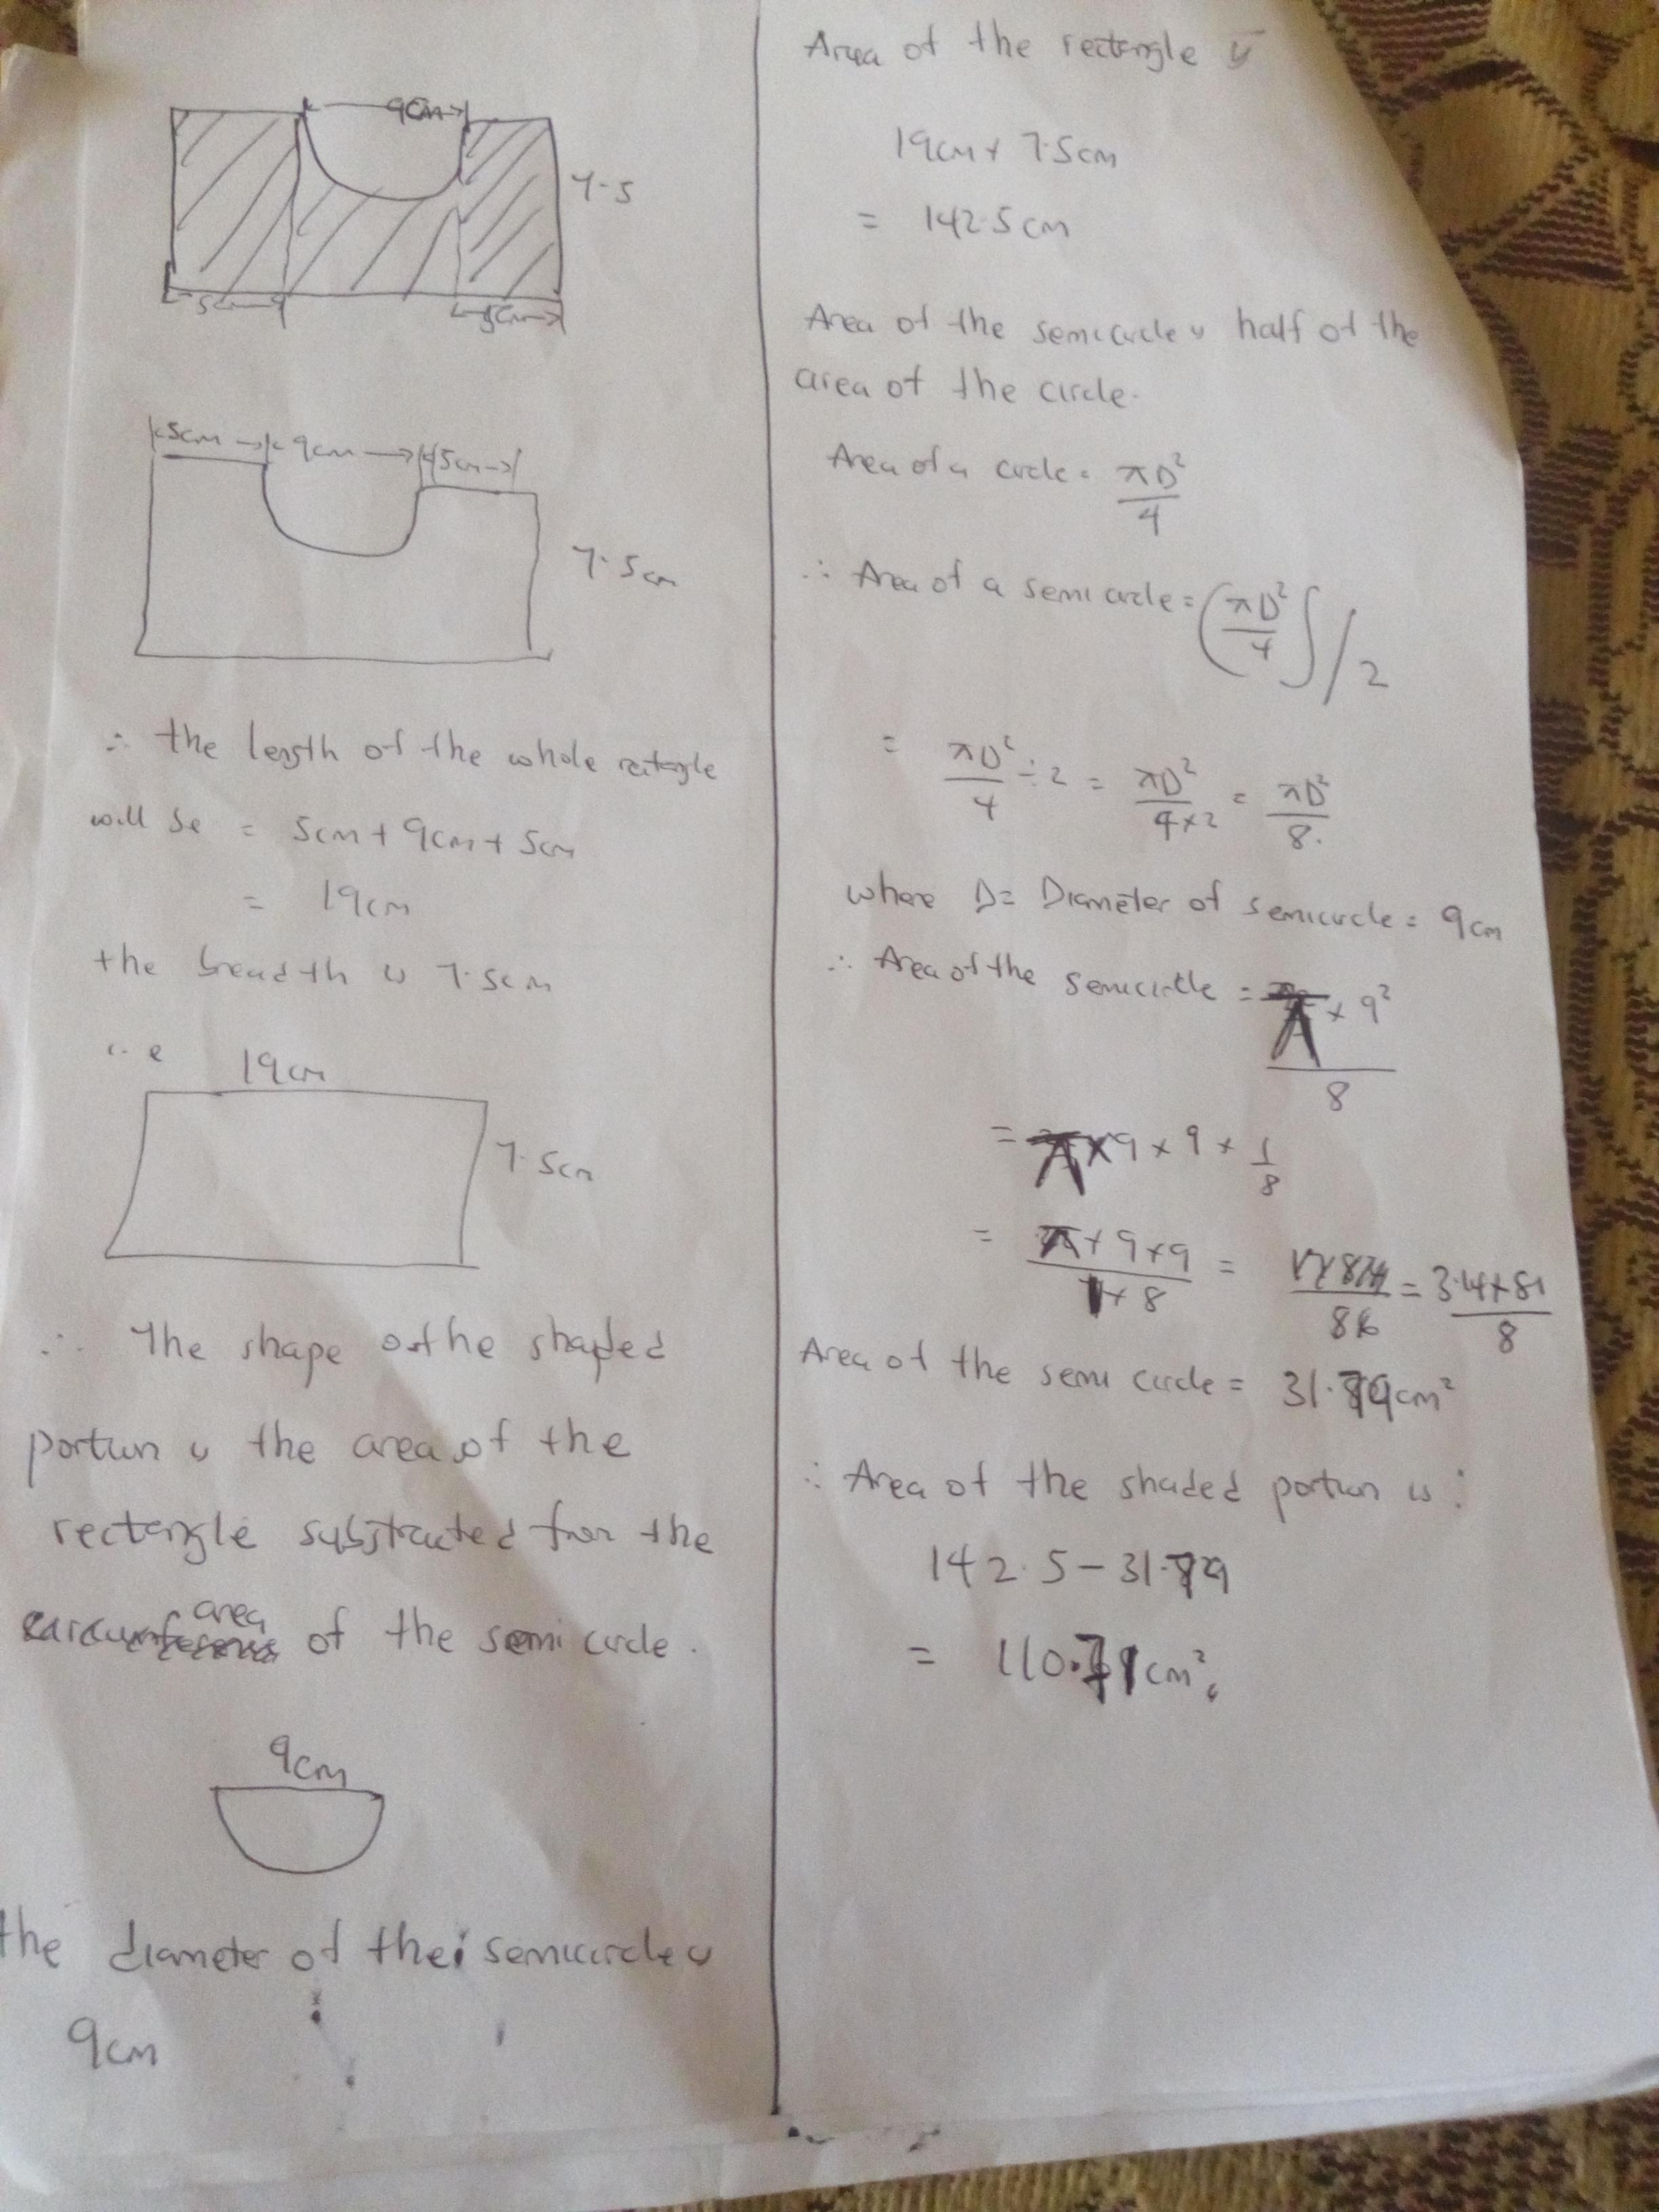 9cm
7.5
5cm
5cm
5cm 9cm 5cm
7.5cm
∴ the length of the whole rectangle
will be = 5cm + 9cm + 5cm
= 19cm
the breadth is 7.5cm
i.e 19cm
7.5cm
∴ The shape of the shaded
portion is the area of the
rectangle substracted from the
area
of the semi circle.
9cm
the diameter of the semicircle is
9cm
Area of the rectangle is
19cm × 7.5cm
= 142.5cm
Area of the semicircle is half of the
area of the circle.
Area of a circle = πD²/4
∴ Area of a semi circle = (πD²/4)/2
= πD²/4 ÷ 2 = πD²/4×2 = πD²/8.
where D = Diameter of semicircle = 9cm
∴ Area of the semicircle = π × 9²/8
= π × 9 × 9 × 1/8
= π × 9 × 9/1 × 8 = = 3.14 × 81/8
Area of the semi circle = 31.79cm²
∴ Area of the shaded portion is:
142.5 - 31.79
= 110.71cm²